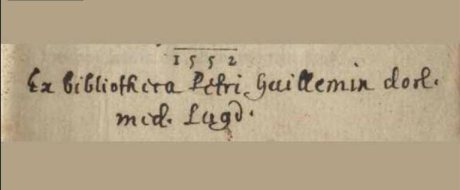 1552
Ex bibliotheca Petri Guillemin doct.
med. Lugd.